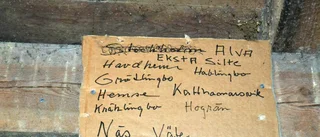 Stockholm ALVA
EKSTA Silte
Havdhem Hablingbo
Grötlingbo
Hemse Katthamarsvik
Kräklingbo Hogrän
Näs Väte